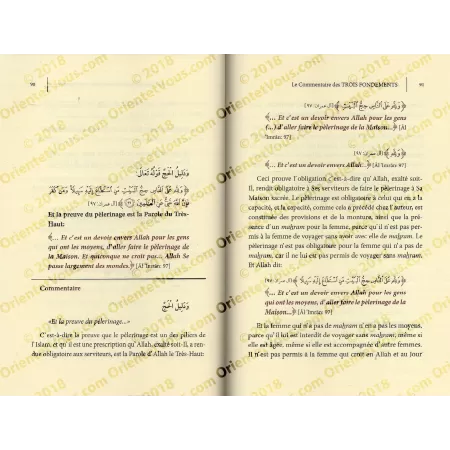 90
وَدَلِيلُ الْحَجِّ قَوْلُهُ تَعَالَىٰ
﴿ وَلِلَّهِ عَلَى النَّاسِ حِجُّ الْبَيْتِ مَنِ اسْتَطَاعَ إِلَيْهِ سَبِيلًا وَمَن كَفَرَ
فَإِنَّ اللَّهَ غَنِيٌّ عَنِ الْعَالَمِينَ ﴾ [آل عمران: ٩٧]
Et la preuve du pèlerinage est la Parole du Très-
Haut:
﴾... Et c'est un devoir envers Allah pour les gens
qui ont les moyens, d'aller faire le pèlerinage de
la Maison. Et quiconque ne croit pas... Allah Se
passe largement des mondes.﴿ [Âl 'Imrân: 97]
Commentaire
وَدَلِيلُ الْحَجِّ
«Et la preuve du pèlerinage...»
C'est-à-dire la preuve que le pèlerinage est un des piliers de
l'Islam, et qu'il est une prescription qu'Allah, exalté soit-Il, a ren-
due obligatoire aux serviteurs, est la Parole d'Allah le Très-Haut:
Le Commentaire des TROIS FONDEMENTS
91
﴿ وَلِلَّهِ عَلَى النَّاسِ حِجُّ الْبَيْتِ ﴾ [آل عمران: ٩٧]
﴾... Et c'est un devoir envers Allah pour les gens
(...) d'aller faire le pèlerinage de la Maison...﴿ [Âl
'Imrân: 97]
﴿ وَلِلَّهِ ﴾ [آل عمران: ٩٧]
﴾... Et c'est un devoir envers Allah...﴿ [Âl 'Imrân: 97]
Ceci prouve l'obligation c'est-à-dire qu'Allah, exalté soit-
Il, rendit obligatoire à Ses serviteurs de faire le pèlerinage à Sa
Maison sacrée. Le pèlerinage est obligatoire à celui qui en a la
capacité, et la capacité, comme cela a précédé chez l'auteur, est
constituée des provisions et de la monture, ainsi que de la pré-
sence d'un mahram pour la femme, car la femme qui n'a pas
de mahram n'a pas les moyens d'effectuer le pèlerinage. Le
pèlerinage n'est pas obligatoire pour la femme qui n'a pas de
mahram, car il ne lui est pas permis de voyager sans mahram.
Et Allah dit:
﴿ وَلِلَّهِ عَلَى النَّاسِ حِجُّ الْبَيْتِ مَنِ اسْتَطَاعَ إِلَيْهِ سَبِيلًا ﴾ [آل عمران: ٩٧]
﴾... Et c'est un devoir envers Allah pour les gens
qui ont les moyens, d'aller faire le pèlerinage de la
Maison...﴿ [Âl 'Imrân: 97]
Et la femme qui n'a pas de mahram n'a pas les moyens,
parce qu'il est interdit à la femme de voyager sans mahram. Il
est interdit à la femme de voyager sans mahram, même si elle
est âgée, même si elle est accompagnée d'autres femmes.
Il n'est pas permis à la femme qui croit en Allah et au Jour